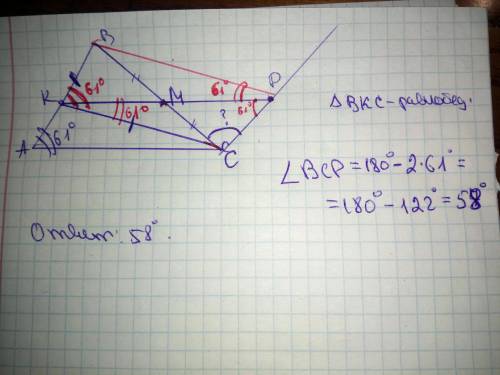 B
61°
K
M
61°
D
61°
61°
A
61°
?
C
△BKC-равнобед.
∠BCD = 180° - 2·61° =
= 180° - 122° = 58°
Ответ: 58°.